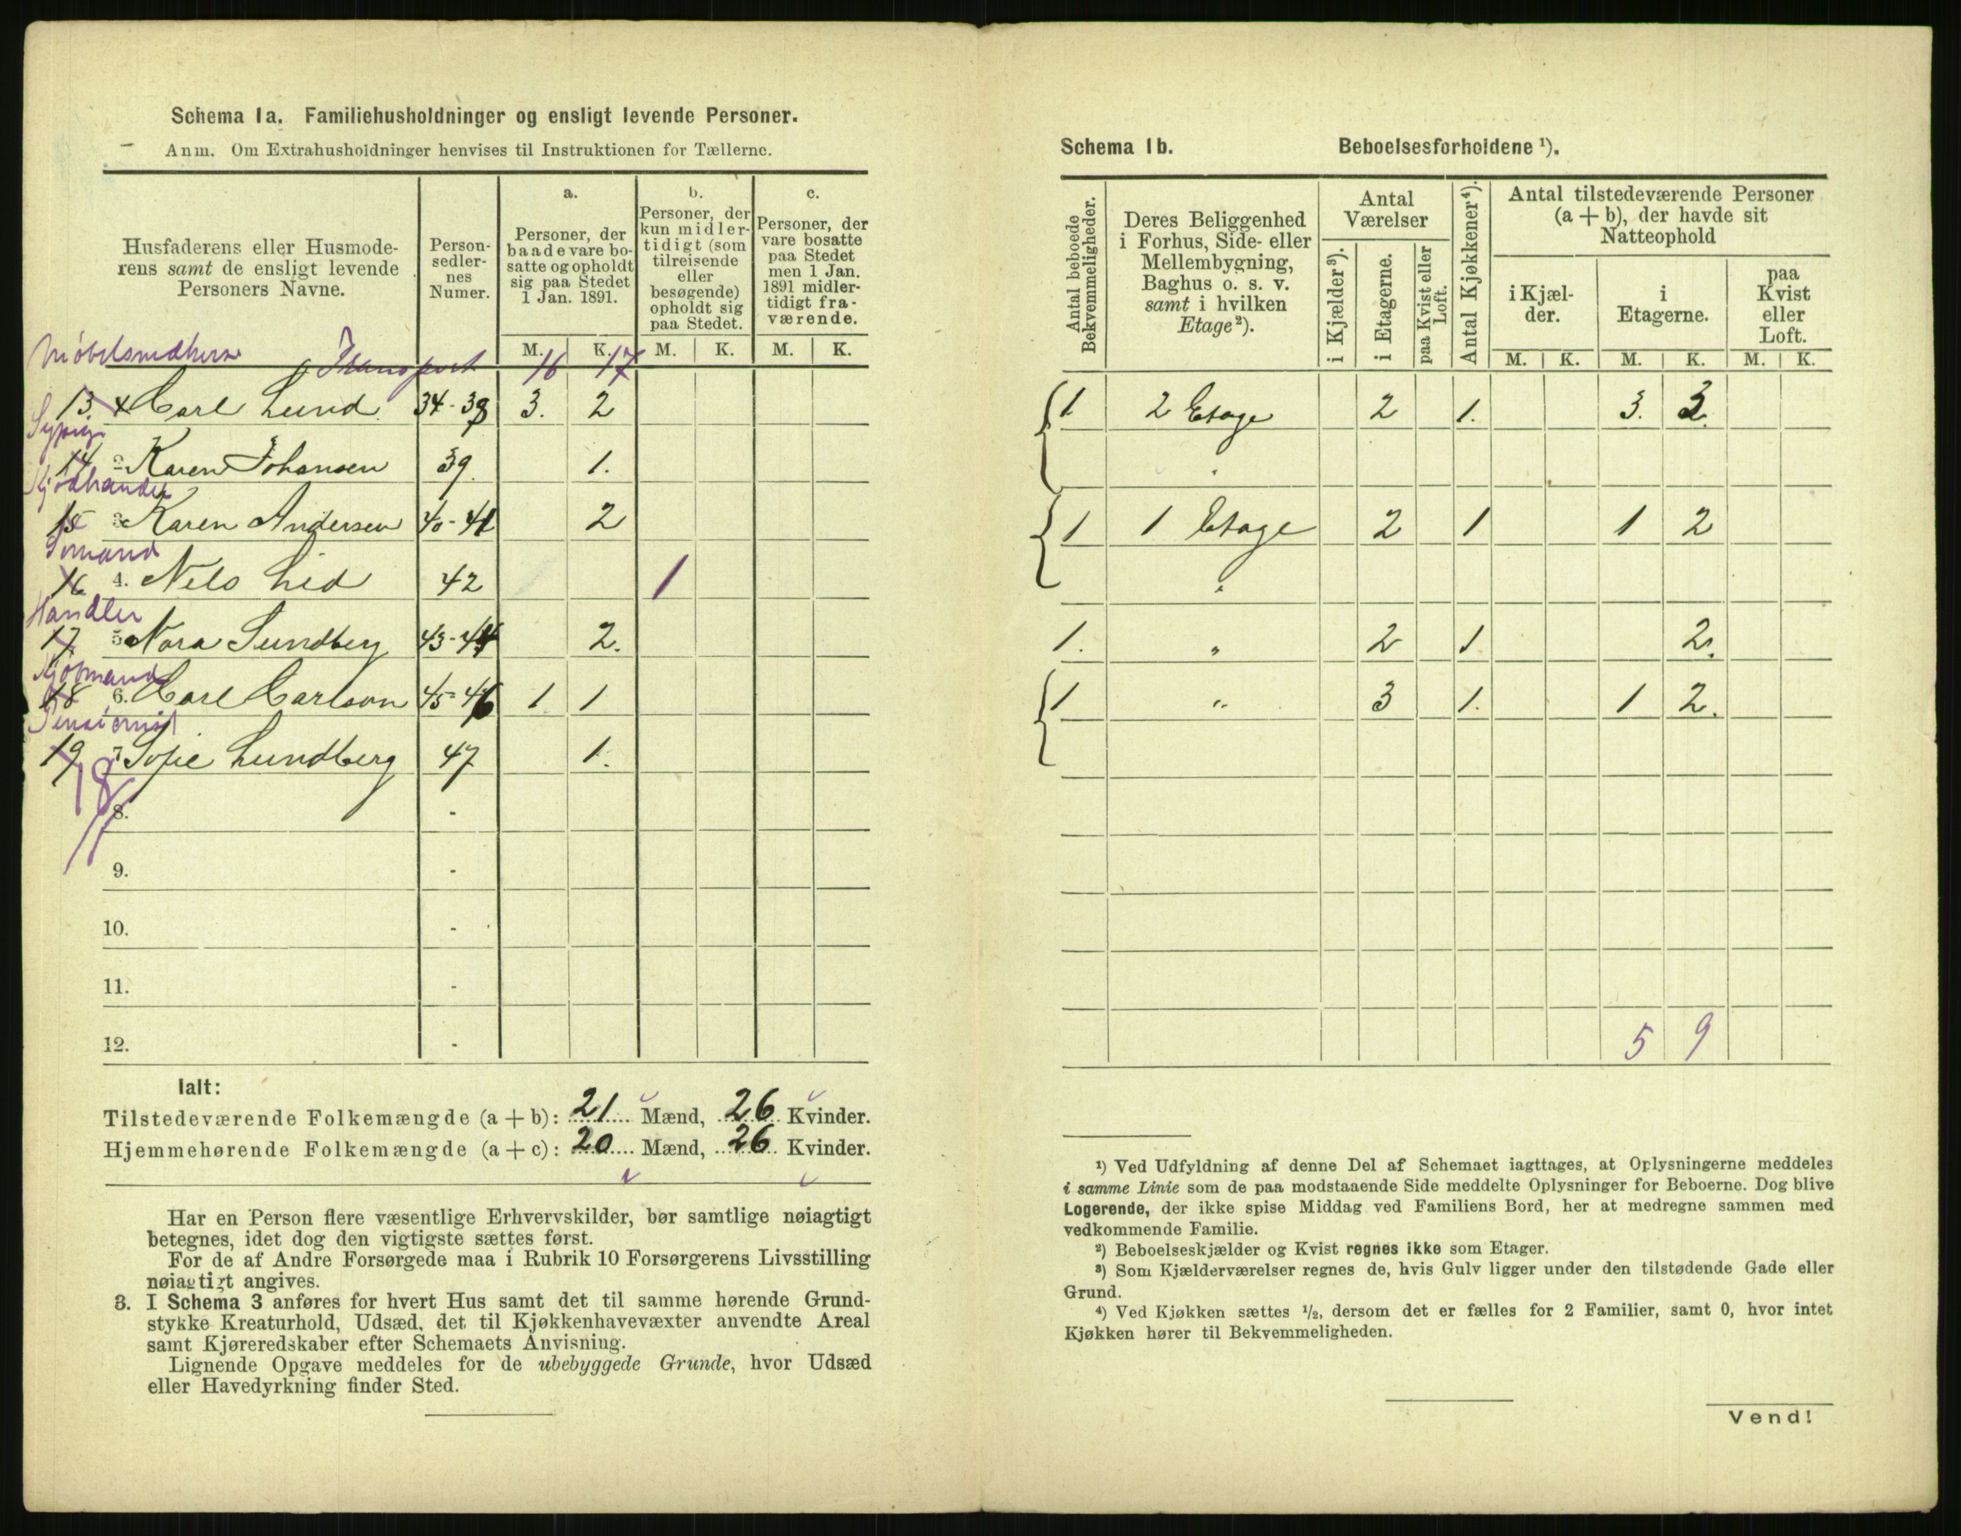 Schema 1a. Familiehusholdninger og ensligt levende Personer.
Anm. Om Extrahusholdninger henvises til Instruktionen for Tællerne.
Husfaderens eller Husmoderens samt de ensligt levende Personers Navne.
Personsedlernes Numer.
a.
Personer, der baade vare bosatte og opholdt sig paa Stedet 1 Jan. 1891.
b.
Personer, der kun midlertidigt (som tilreisende eller besøgende) opholdt sig paa Stedet.
c.
Personer, der vare bosatte paa Stedet men 1 Jan. 1891 midlertidigt fraværende.
M. K. M. K. M. K.
Transport 16 17
13 Carl Lund 34-38 3. 2
14 2 Karen Johansen 39 1.
Kjødhandel
15 3 Karen Andersen 40-41 2
Sømand
16 4. Nels Lid 42 1
Handler
17 5 Nora Sundberg 43-44 2.
Kjøbmand
18 6. Carl Carlson 45-46 1 1
Pensionist
19 7 Sofie Lundberg 47 1.
18
8. -
9. -
10. -
11. -
12. -
Ialt:
Tilstedeværende Folkemængde (a + b): 21 Mænd, 26 Kvinder.
Hjemmehørende Folkemængde (a + c): 20 Mænd, 26 Kvinder.
Har en Person flere væsentlige Erhvervskilder, bør samtlige nøiagtigt
betegnes, idet dog den vigtigste sættes først.
For de af Andre Forsørgede maa i Rubrik 10 Forsørgerens Livsstilling
nøiagtigt angives.
3. I Schema 3 anføres for hvert Hus samt det til samme hørende Grund-
stykke Kreaturhold, Udsæd, det til Kjøkkenhavevæxter anvendte Areal
samt Kjøreredskaber efter Schemaets Anvisning.
Lignende Opgave meddeles for de ubebyggede Grunde, hvor Udsæd
eller Havedyrkning finder Sted.
Schema 1b. Beboelsesforholdene ¹).
Antal beboede Bekvemmeligheder.
Deres Beliggenhed i Forhus, Side- eller Mellembygning, Baghus o. s. v. samt i hvilken Etage²).
Antal Værelser
i Kjælder³).
i Etagerne.
paa Kvist eller Loft.
Antal Kjøkkener⁴).
Antal tilstedeværende Personer (a + b), der havde sit Natteophold
i Kjælder.
i Etagerne.
paa Kvist eller Loft.
M. K. M. K. M. K.
1 2 Etage 2 1. 3. 3
"
1 1 Etage 2 1 1 2
"
1. " 2 1 2.
1 " 3 1. 1 2.
5 9
¹) Ved Udfyldning af denne Del af Schemaet iagttages, at Oplysningerne meddeles
i samme Linie som de paa modstaaende Side meddelte Oplysninger for Beboerne. Dog blive
Logerende, der ikke spise Middag ved Familiens Bord, her at medregne sammen med
vedkommende Familie.
²) Beboelseskjælder og Kvist regnes ikke som Etager.
³) Som Kjælderværelser regnes de, hvis Gulv ligger under den tilstødende Gade eller
Grund.
⁴) Ved Kjøkken sættes ¹/₂, dersom det er fælles for 2 Familier, samt 0, hvor intet
Kjøkken hører til Bekvemmeligheden.
Vend!